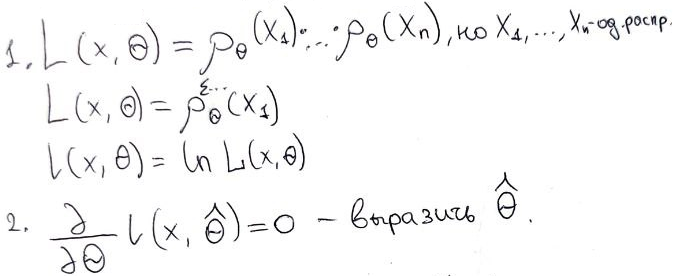 1. L(x, Θ) = ρ_Θ(X_1)·...·ρ_Θ(X_n), но X_1, ..., X_n - од. распр.
L(x, Θ) = ρ_Θ^{Σ...}(X_1)
l(x, Θ) = ln L(x, Θ)
2. ∂/∂Θ l(x, Θ̂) = 0 – выразить Θ̂.